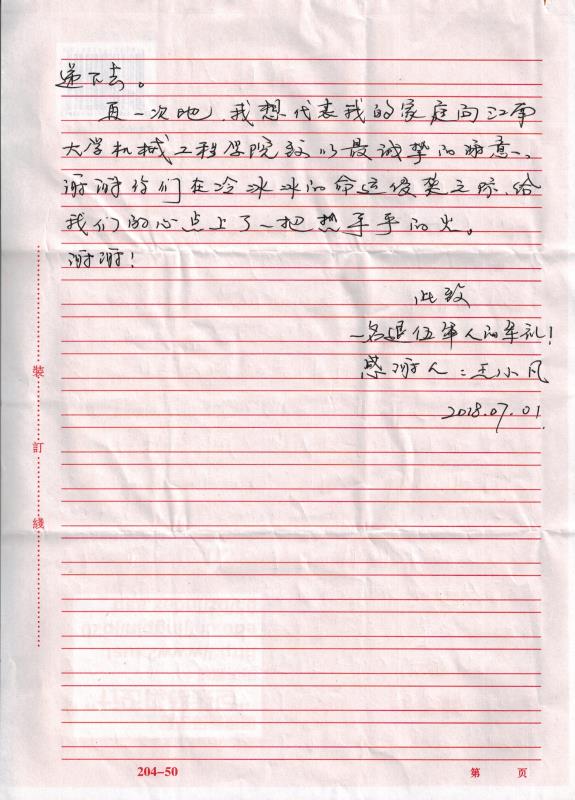 递下去。
再一次地,我想代表我的家庭向江南
大学机械工程学院致以最诚挚的谢意、
谢谢你们在冷冰冰的命运侵袭之际,给
我们的心点上了一把热乎乎的火。
谢谢!
此致
一名退伍军人的军礼!
感谢人:王小凡
2018.07.01.
裝
訂
綫
204-50
第 页